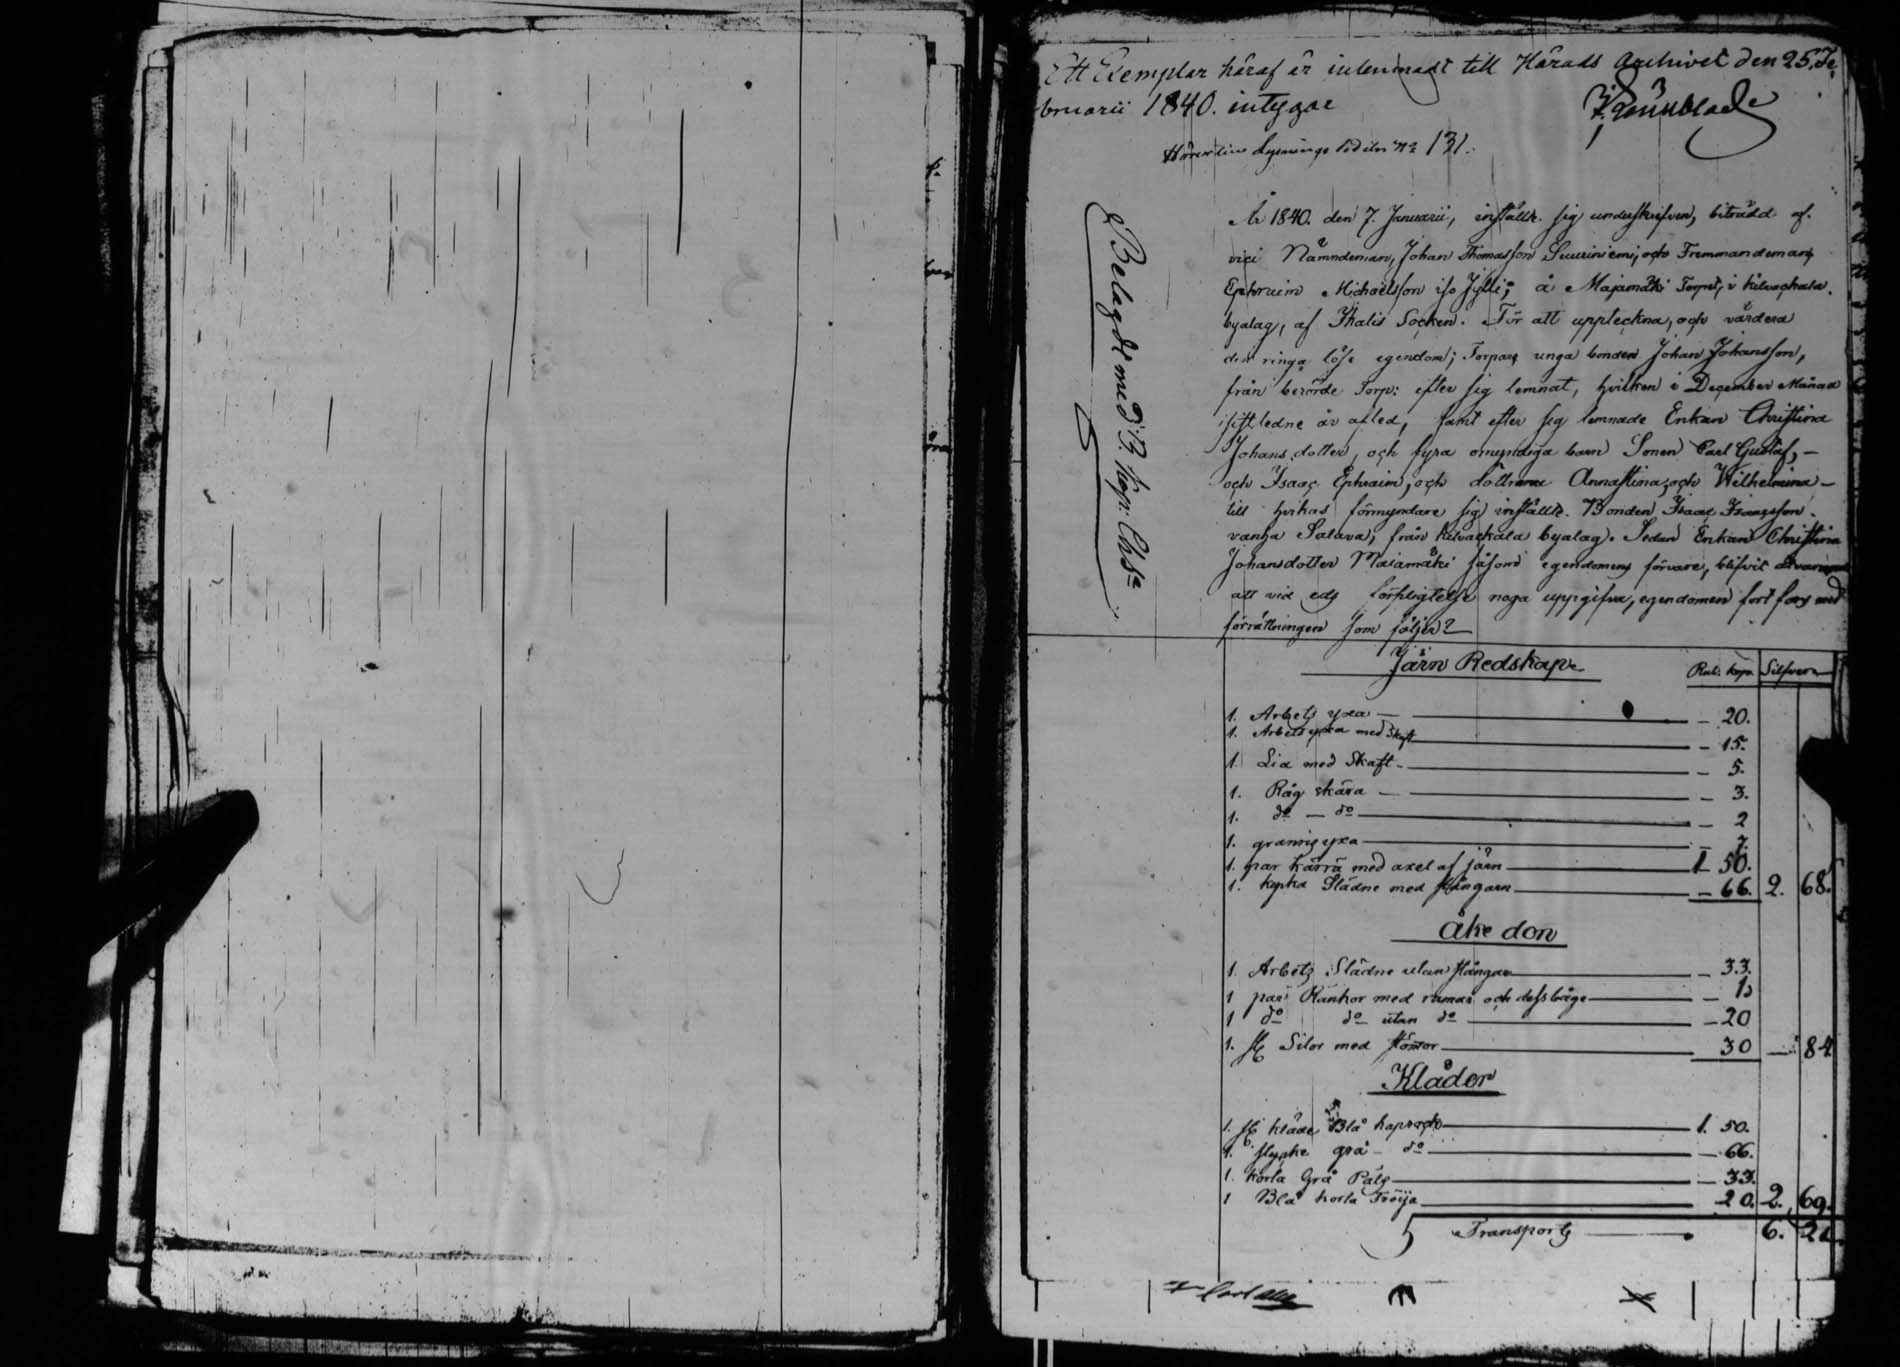 Ett Exemplar häraf är inlemnadt till Härads Archivet den 25. Fe
bruarii 1840. intygar
N:o 131.
Belagde med 12. kop: Ch. S:a
År 1840. den 7. Januarii, instälte sig underskrifven, biträdd af.
vici Nämndeman, Johan Thomasson Suuriniemi, och Fremmandeman,
Ephraim Michaelsson iso Jylli; å Majamäki Torp, i kilvackala.
byalag, af Ikalis Socken. För att uppteckna, och värdera
den ringa löse egendom; Torpare unga bonden Johan Johansson,
från berörde Torp: efter sig lemnat, hvilken i December Månad
sittledne år afled, samt efter sig lemnade Enkan Christina
Johans dotter, och fyra omyndiga barn Sonen Carl Gustaf, –
och Isaac Ephraim, och döttrarne Annastina, och Wilhelmina –
till hvilkas förmyndare sig instälte. Bonden Isaac Isaacsson.
vanha Salava, från kilvackala byalag. Sedan Enkan Christina
Johansdotter Maiamäki såsom egendomens förvare, blifvit
att vid eds förpligtelse noga uppgifva, egendomen fort fors med
förrättningen som följer
Järn Redskap
Rub: kop. Silfver
1. Arbets yxa — – 20.
1. Arbets yxa med Skaft – 15.
1. Lia med Skaft – – 5.
1. Råg skära — – 3.
1. d:o – d:o – 2
1. yxa – 7.
1. par kärrä med axel af järn 1 50.
1. Slädne med stångarn – 66. 2. 68.
Åke don
1. Arbets Slädne utan stångar – 33.
1 par Rankor med ramar och
1 d:o d:o utan d:o – 20
1. st Silor med tömor 30 — 84
Kläder
1. st kläde Blå kaprock 1. 50.
1. stycke grå – d:o – 66.
1. korta Grå Päls – 33.
1 Blå korta Tröija 20. 2. 69.
Transport 6. 21.